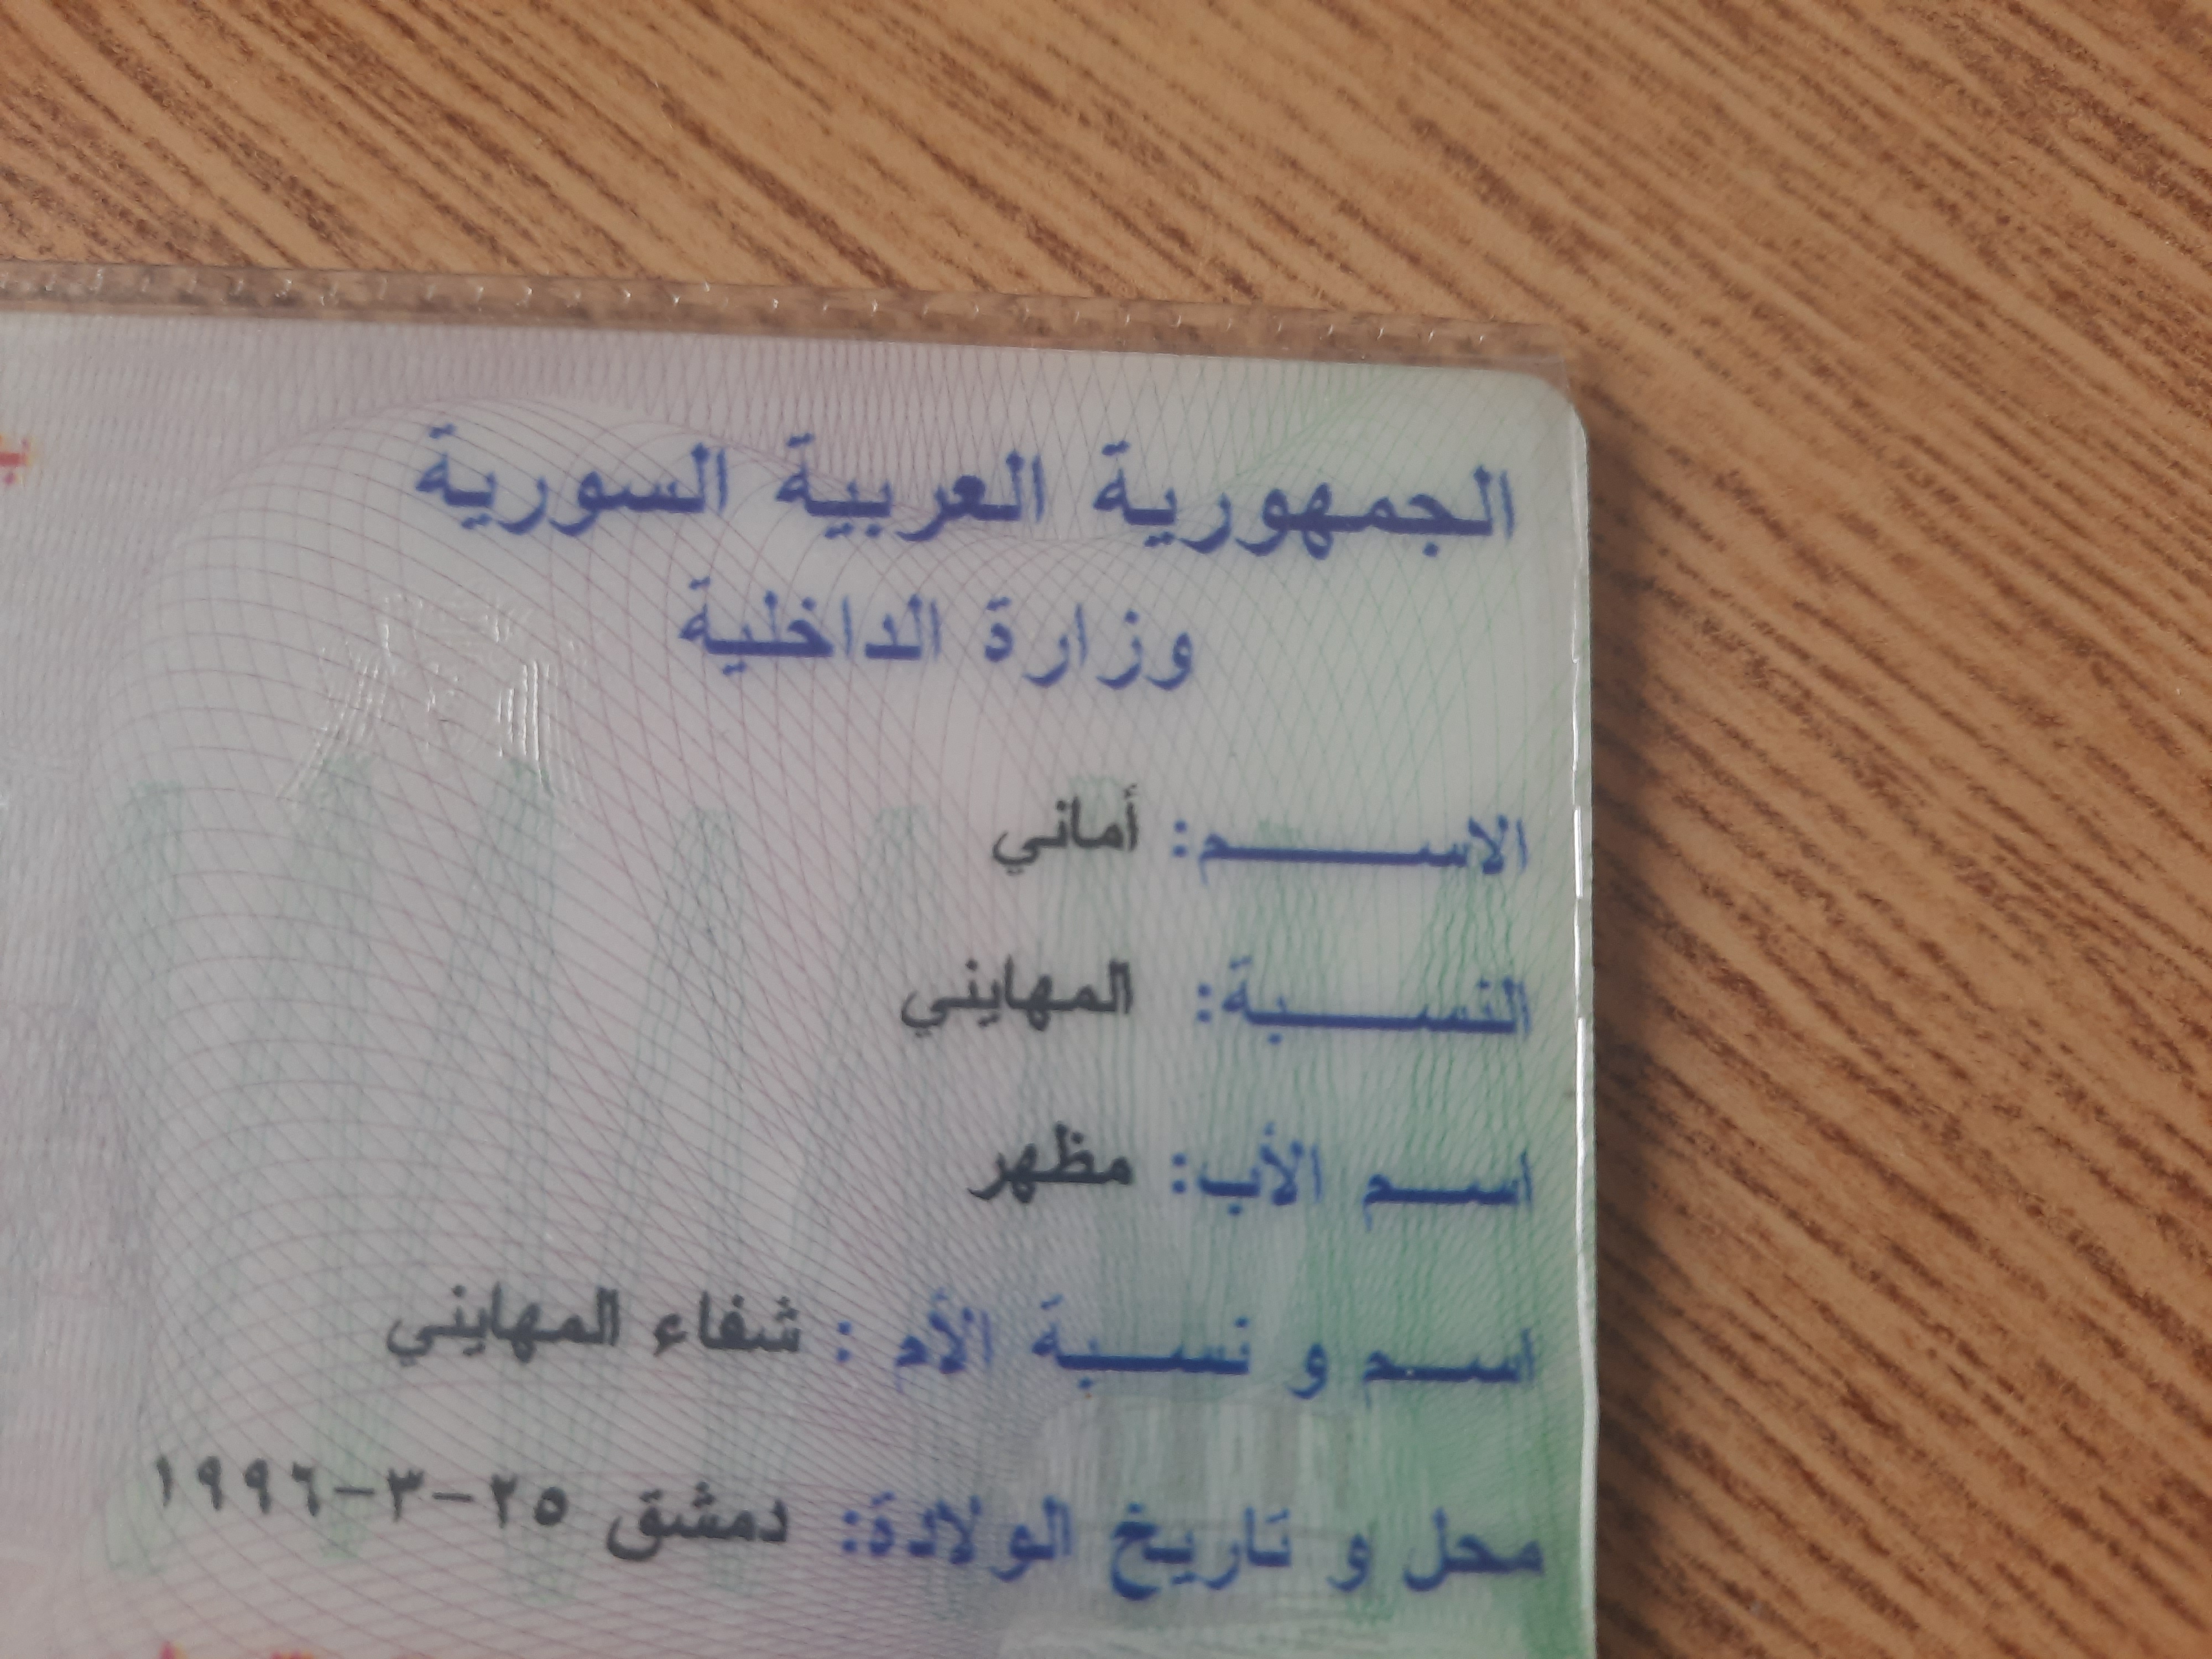 الجمهورية العربية السورية
وزارة الداخلية
الاسم: أماني
النسبة: المهايني
اسم الأب: مظهر
اسم و نسبة الأم : شفاء المهايني
محل و تاريخ الولادة: دمشق ٢٥-٣-١٩٩٦